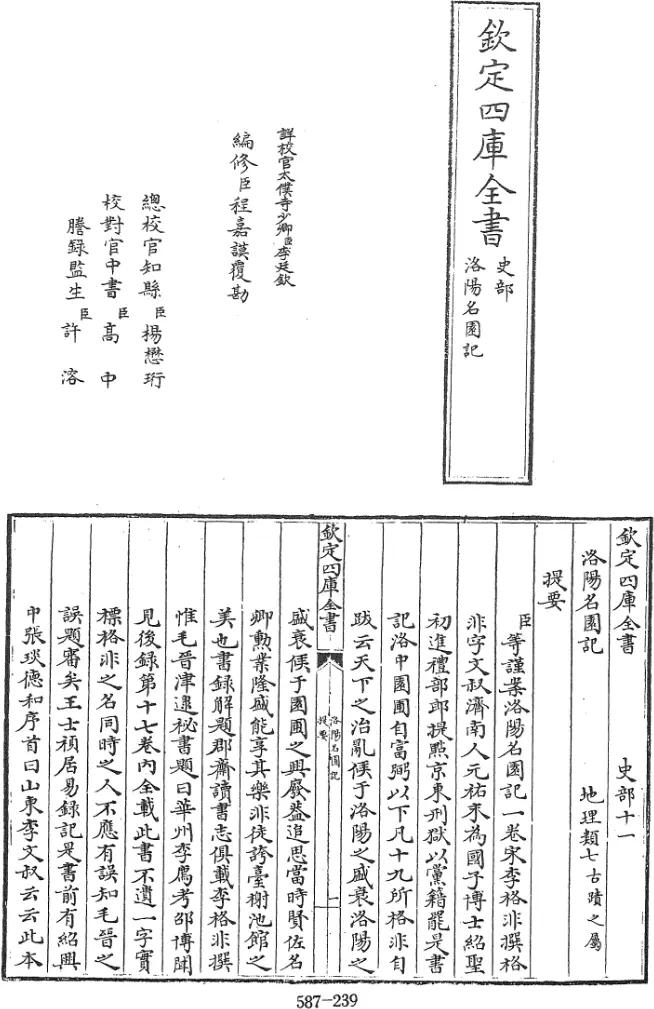 欽定四庫全書
史部
洛陽名園記
詳校官太僕寺少卿臣李廷欽
編修臣程嘉謨覆勘
總校官知縣臣楊懋珩
校對官中書臣高中
謄錄監生臣許溶
欽定四庫全書
史部十一
洛陽名園記
地理類七古蹟之屬
提要
臣等謹案洛陽名園記一卷宋李格非撰格
非字文叔濟南人元祐末為國子博士紹聖
初進禮部郎提點京東刑獄以黨籍罷是書
記洛中園圃自富弼以下凡十九所格非自
跋云天下之治亂候于洛陽之盛衰洛陽之
欽定四庫全書
洛陽名園記
提要
一
盛衰候于園圃之興廢蓋追思當時賢佐名
卿勲業隆盛能享其樂非徒誇臺榭池館之
美也書錄解題郡齋讀書志俱載李格非撰
惟毛晉津逮祕書題曰華州李廌考邵博聞
見後錄第十七卷内全載此書不遺一字實
標格非之名同時之人不應有誤知毛晉之
誤題審矣王士禎居易錄記是書前有紹興
中張琰德和序首曰山東李文叔云云此本
587-239